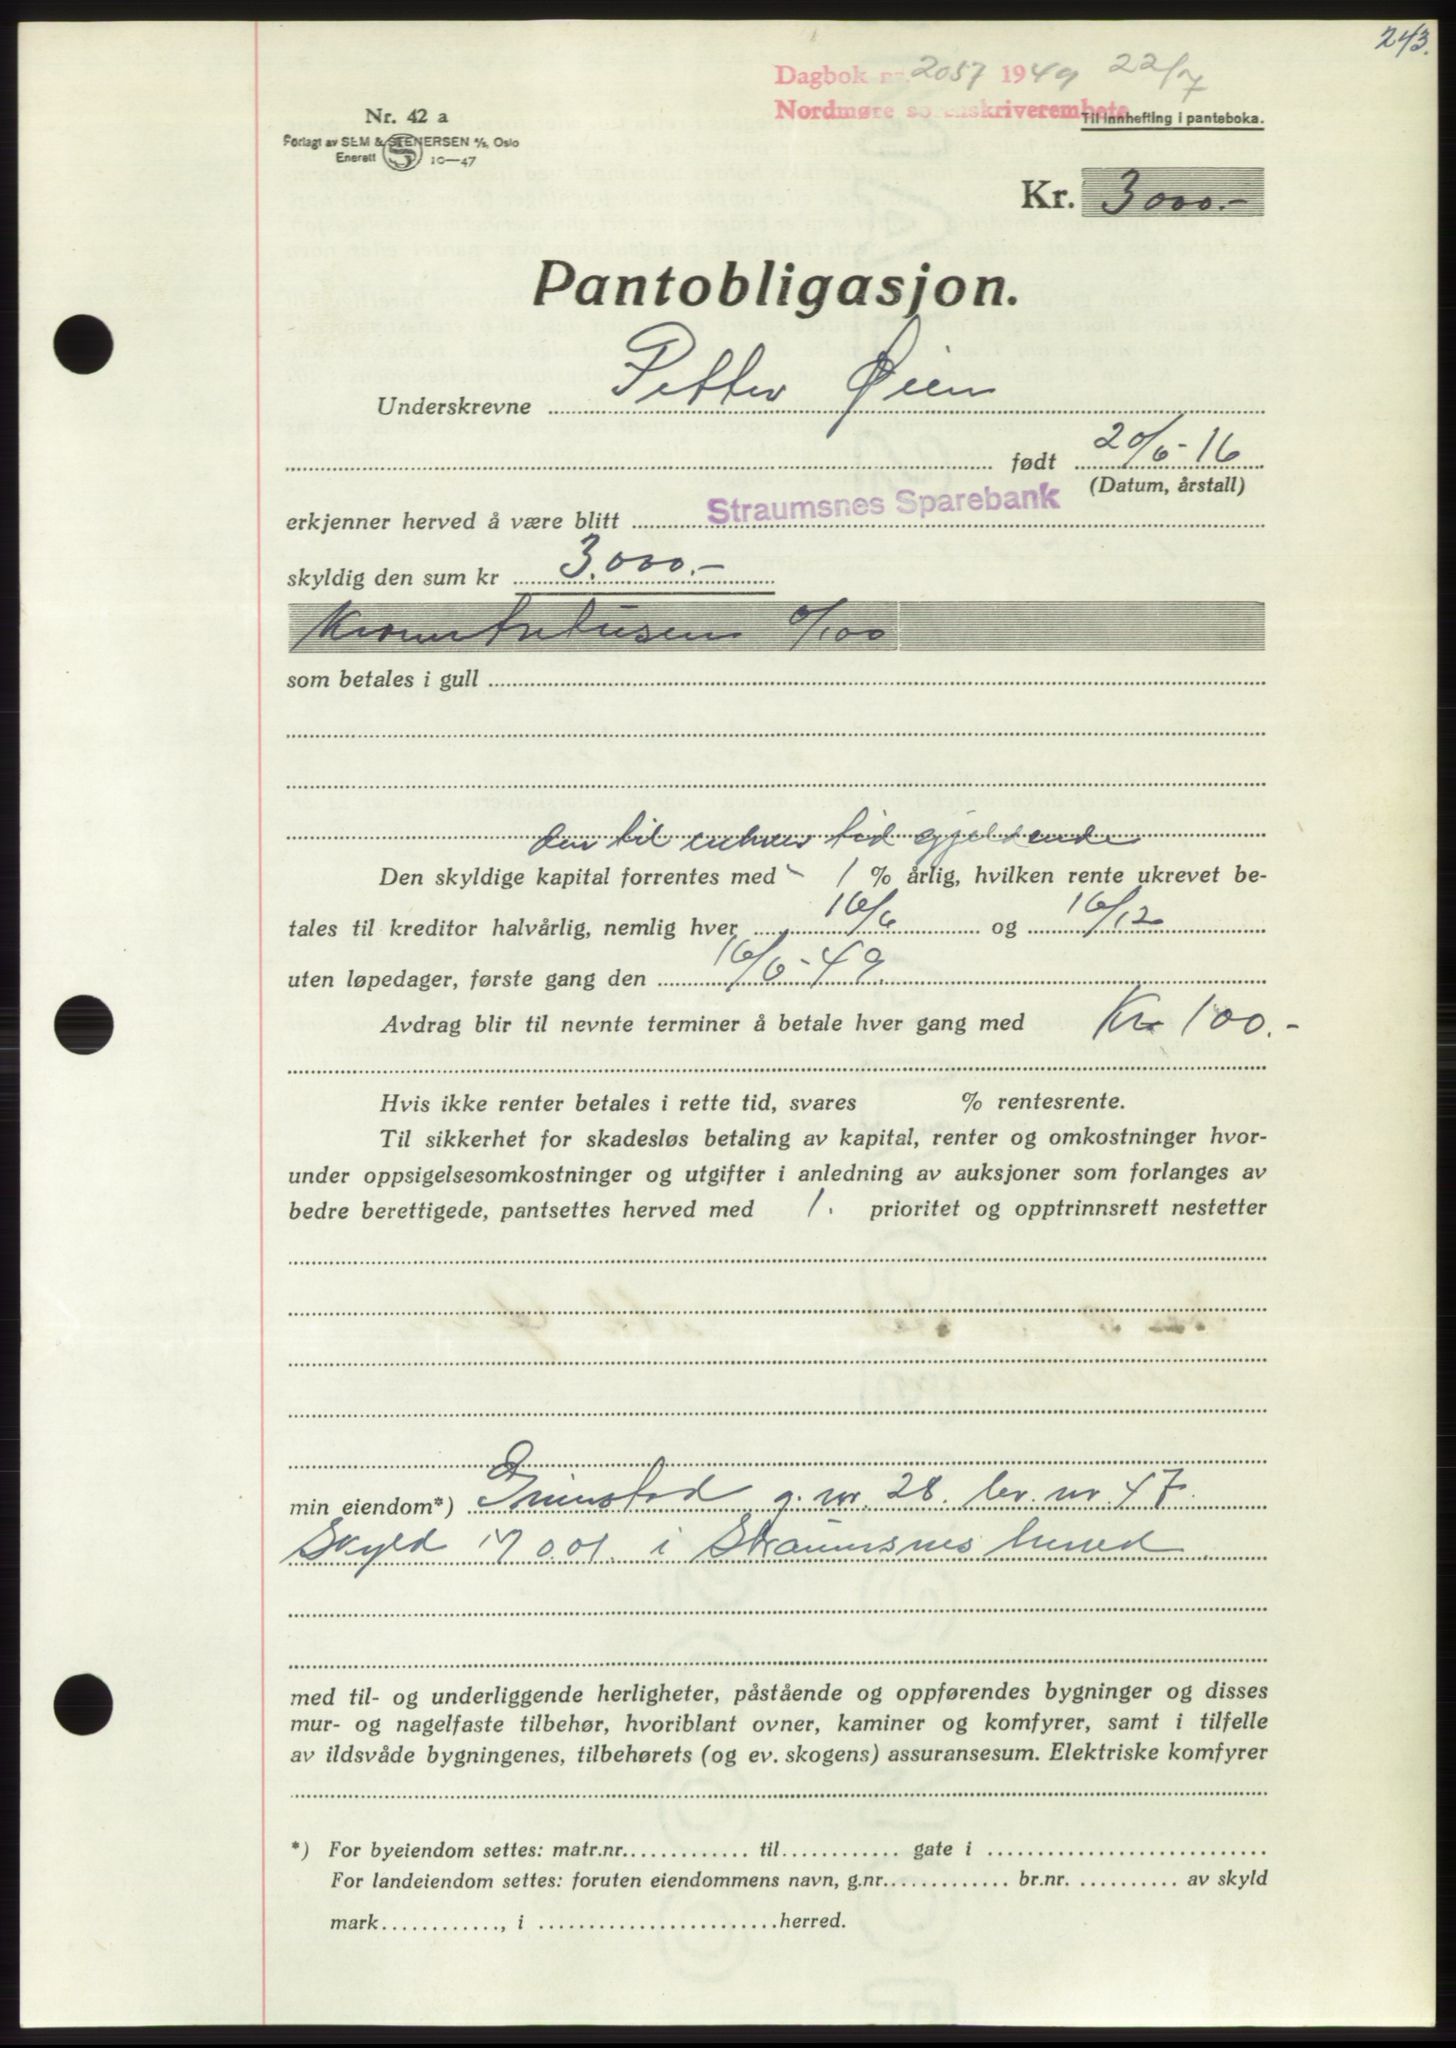 243.
Dagbok nr. 2057 1949 22/7
Nordmøre sorenskriverembete
Til innhefting i panteboka.
Nr. 42 a
Forlagt av SEM & STENERSEN A/S, Oslo
Enerett S 10—47
Kr. 3000.-
Pantobligasjon.
Underskrevne Petter Øien
født 20/6-16
(Datum, årstall)
erkjenner herved å være blitt Straumsnes Sparebank
skyldig den sum kr 3.000.-
Kroner tretusen 0/100
som betales i gull
den til enhver tid gjeldende
Den skyldige kapital forrentes med 1 % årlig, hvilken rente ukrevet be-
tales til kreditor halvårlig, nemlig hver 16/6 og 16/12
uten løpedager, første gang den 16/6-49.
Avdrag blir til nevnte terminer å betale hver gang med Kr 100.-
Hvis ikke renter betales i rette tid, svares % rentesrente.
Til sikkerhet for skadesløs betaling av kapital, renter og omkostninger hvor-
under oppsigelsesomkostninger og utgifter i anledning av auksjoner som forlanges av
bedre berettigede, pantsettes herved med 1. prioritet og opptrinnsrett nestetter
min eiendom*) Grimstad g. nr. 28. br. nr 47.
Skyld m 0.01. i Straumsnes herred
med til- og underliggende herligheter, påstående og oppførendes bygninger og disses
mur- og nagelfaste tilbehør, hvoriblant ovner, kaminer og komfyrer, samt i tilfelle
av ildsvåde bygningenes, tilbehørets (og ev. skogens) assuransesum. Elektriske komfyrer
*) For byeiendom settes: matr.nr. til gate i
For landeiendom settes: foruten eiendommens navn, g.nr. br.nr. av skyld
mark , i herred.